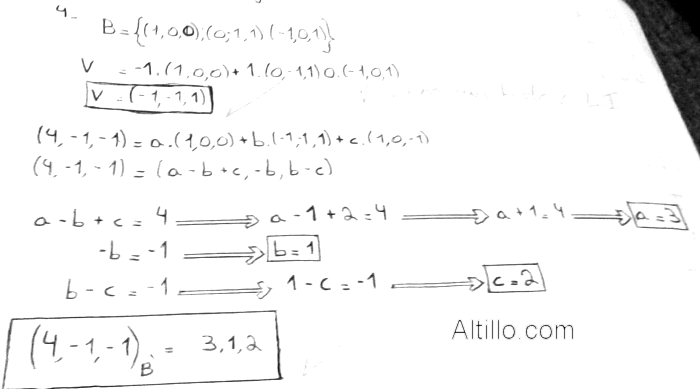 4-
B = {(1,0,0);(0,-1,1)(-1,0,1)}
V = -1.(1,0,0) + 1.(0,-1,1) 0.(-1,0,1)
V = (-1,-1,1)
(4,-1,-1) = a.(1,0,0) + b.(-1,-1,1) + c.(1,0,-1)
(4,-1,-1) = (a - b + c, -b, b - c)
a - b + c = 4 ⟹ a - 1 + 2 = 4 ⟹ a + 1 = 4 ⟹ a = 3
-b = -1 ⟹ b = 1
b - c = -1 ⟹ 1 - c = -1 ⟹ c = 2
(4,-1,-1)B' = 3,1,2
Altillo.com